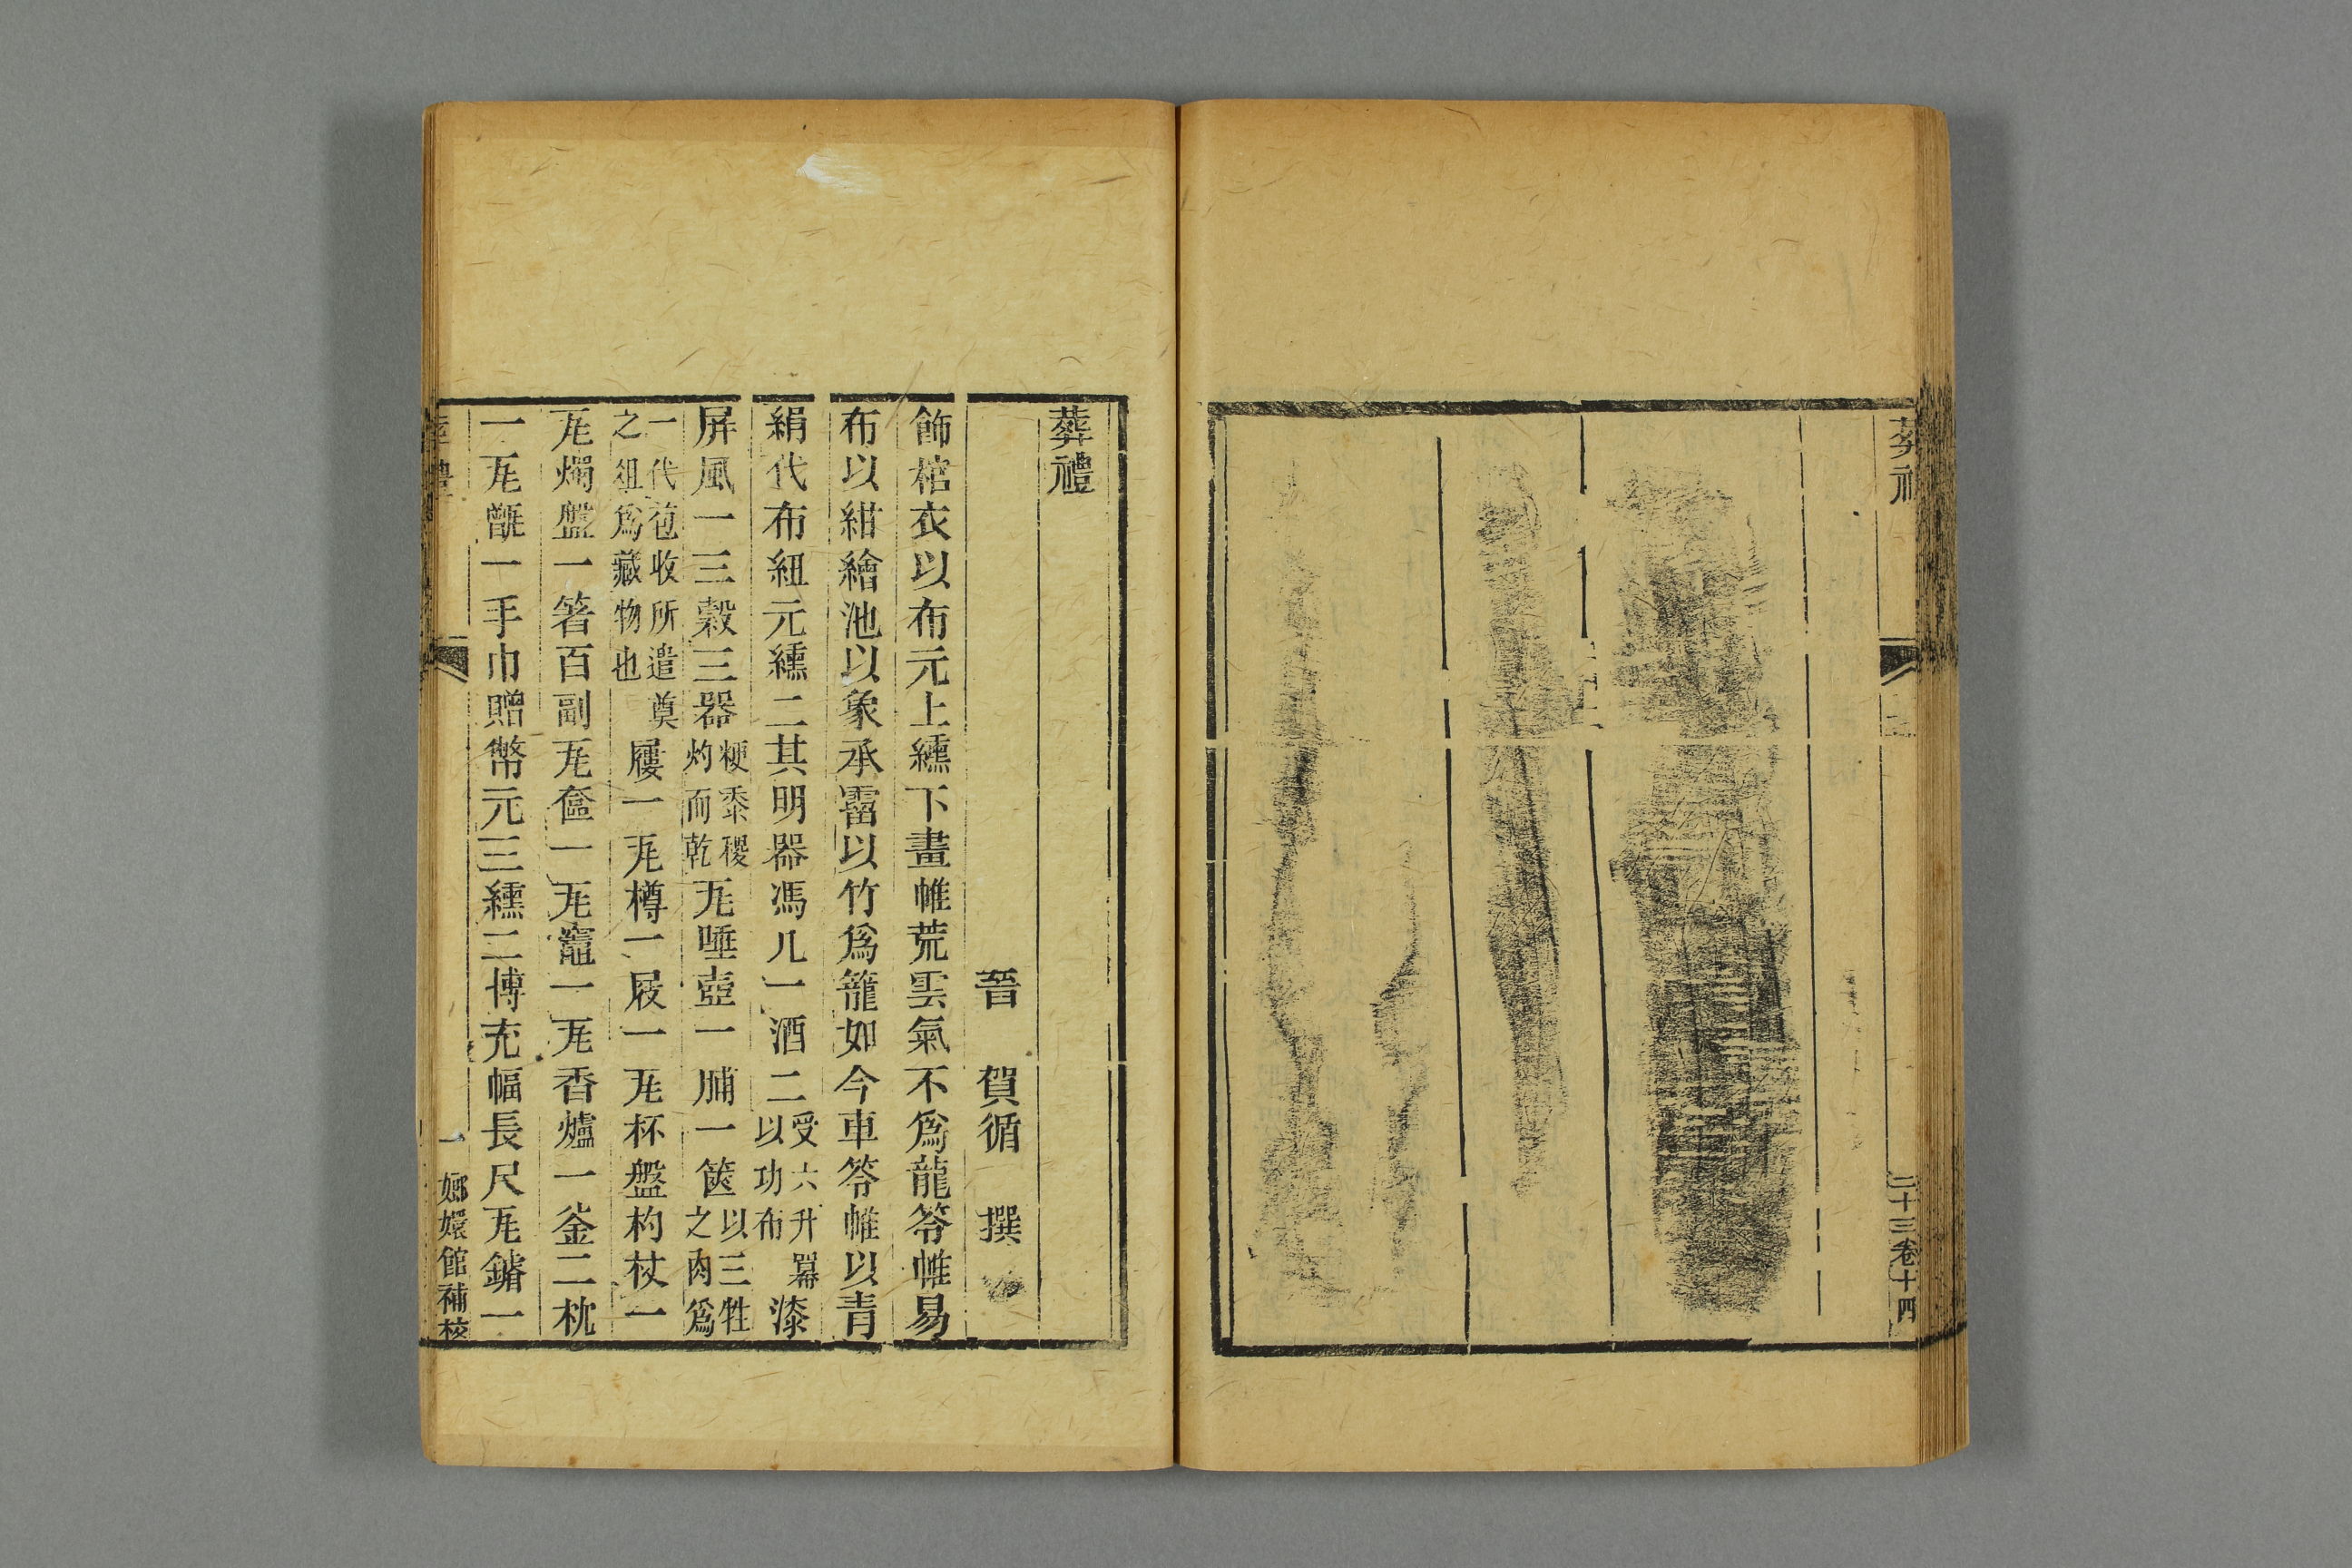 葬禮
二十三卷十四
葬禮
晉 賀循 撰
飾棺衣以布元上纁下畫帷荒雲氣不爲龍笭帷易
布以紺繪池以象承霤以竹爲籠如今車笭帷以青
絹代布紐元纁二其明器馮几一酒二受六升冪以功布漆
屏風一三穀三器粳黍稷灼而乾瓦唾壺一脯一篋以三牲之肉爲
一代苞收所遣奠之俎爲藏物也屨一瓦樽一屐一瓦杯盤杓杖一
瓦燭盤一箸百副瓦奩一瓦竈一瓦香爐一釜二枕
一瓦甑一手巾贈幣元三纁二博充幅長尺瓦鑪一
葬禮
一 嫏嬛館補校